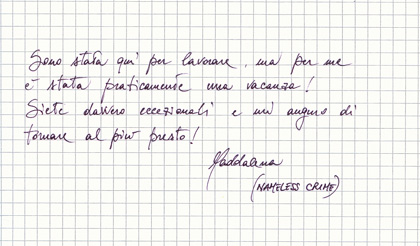 Sono stata qui per lavorare, ma per me
è stata praticamente una vacanza!
Siete davvero eccezionali e mi auguro di
tornare al più presto!
Maddalena
(NAMELESS CRIME)